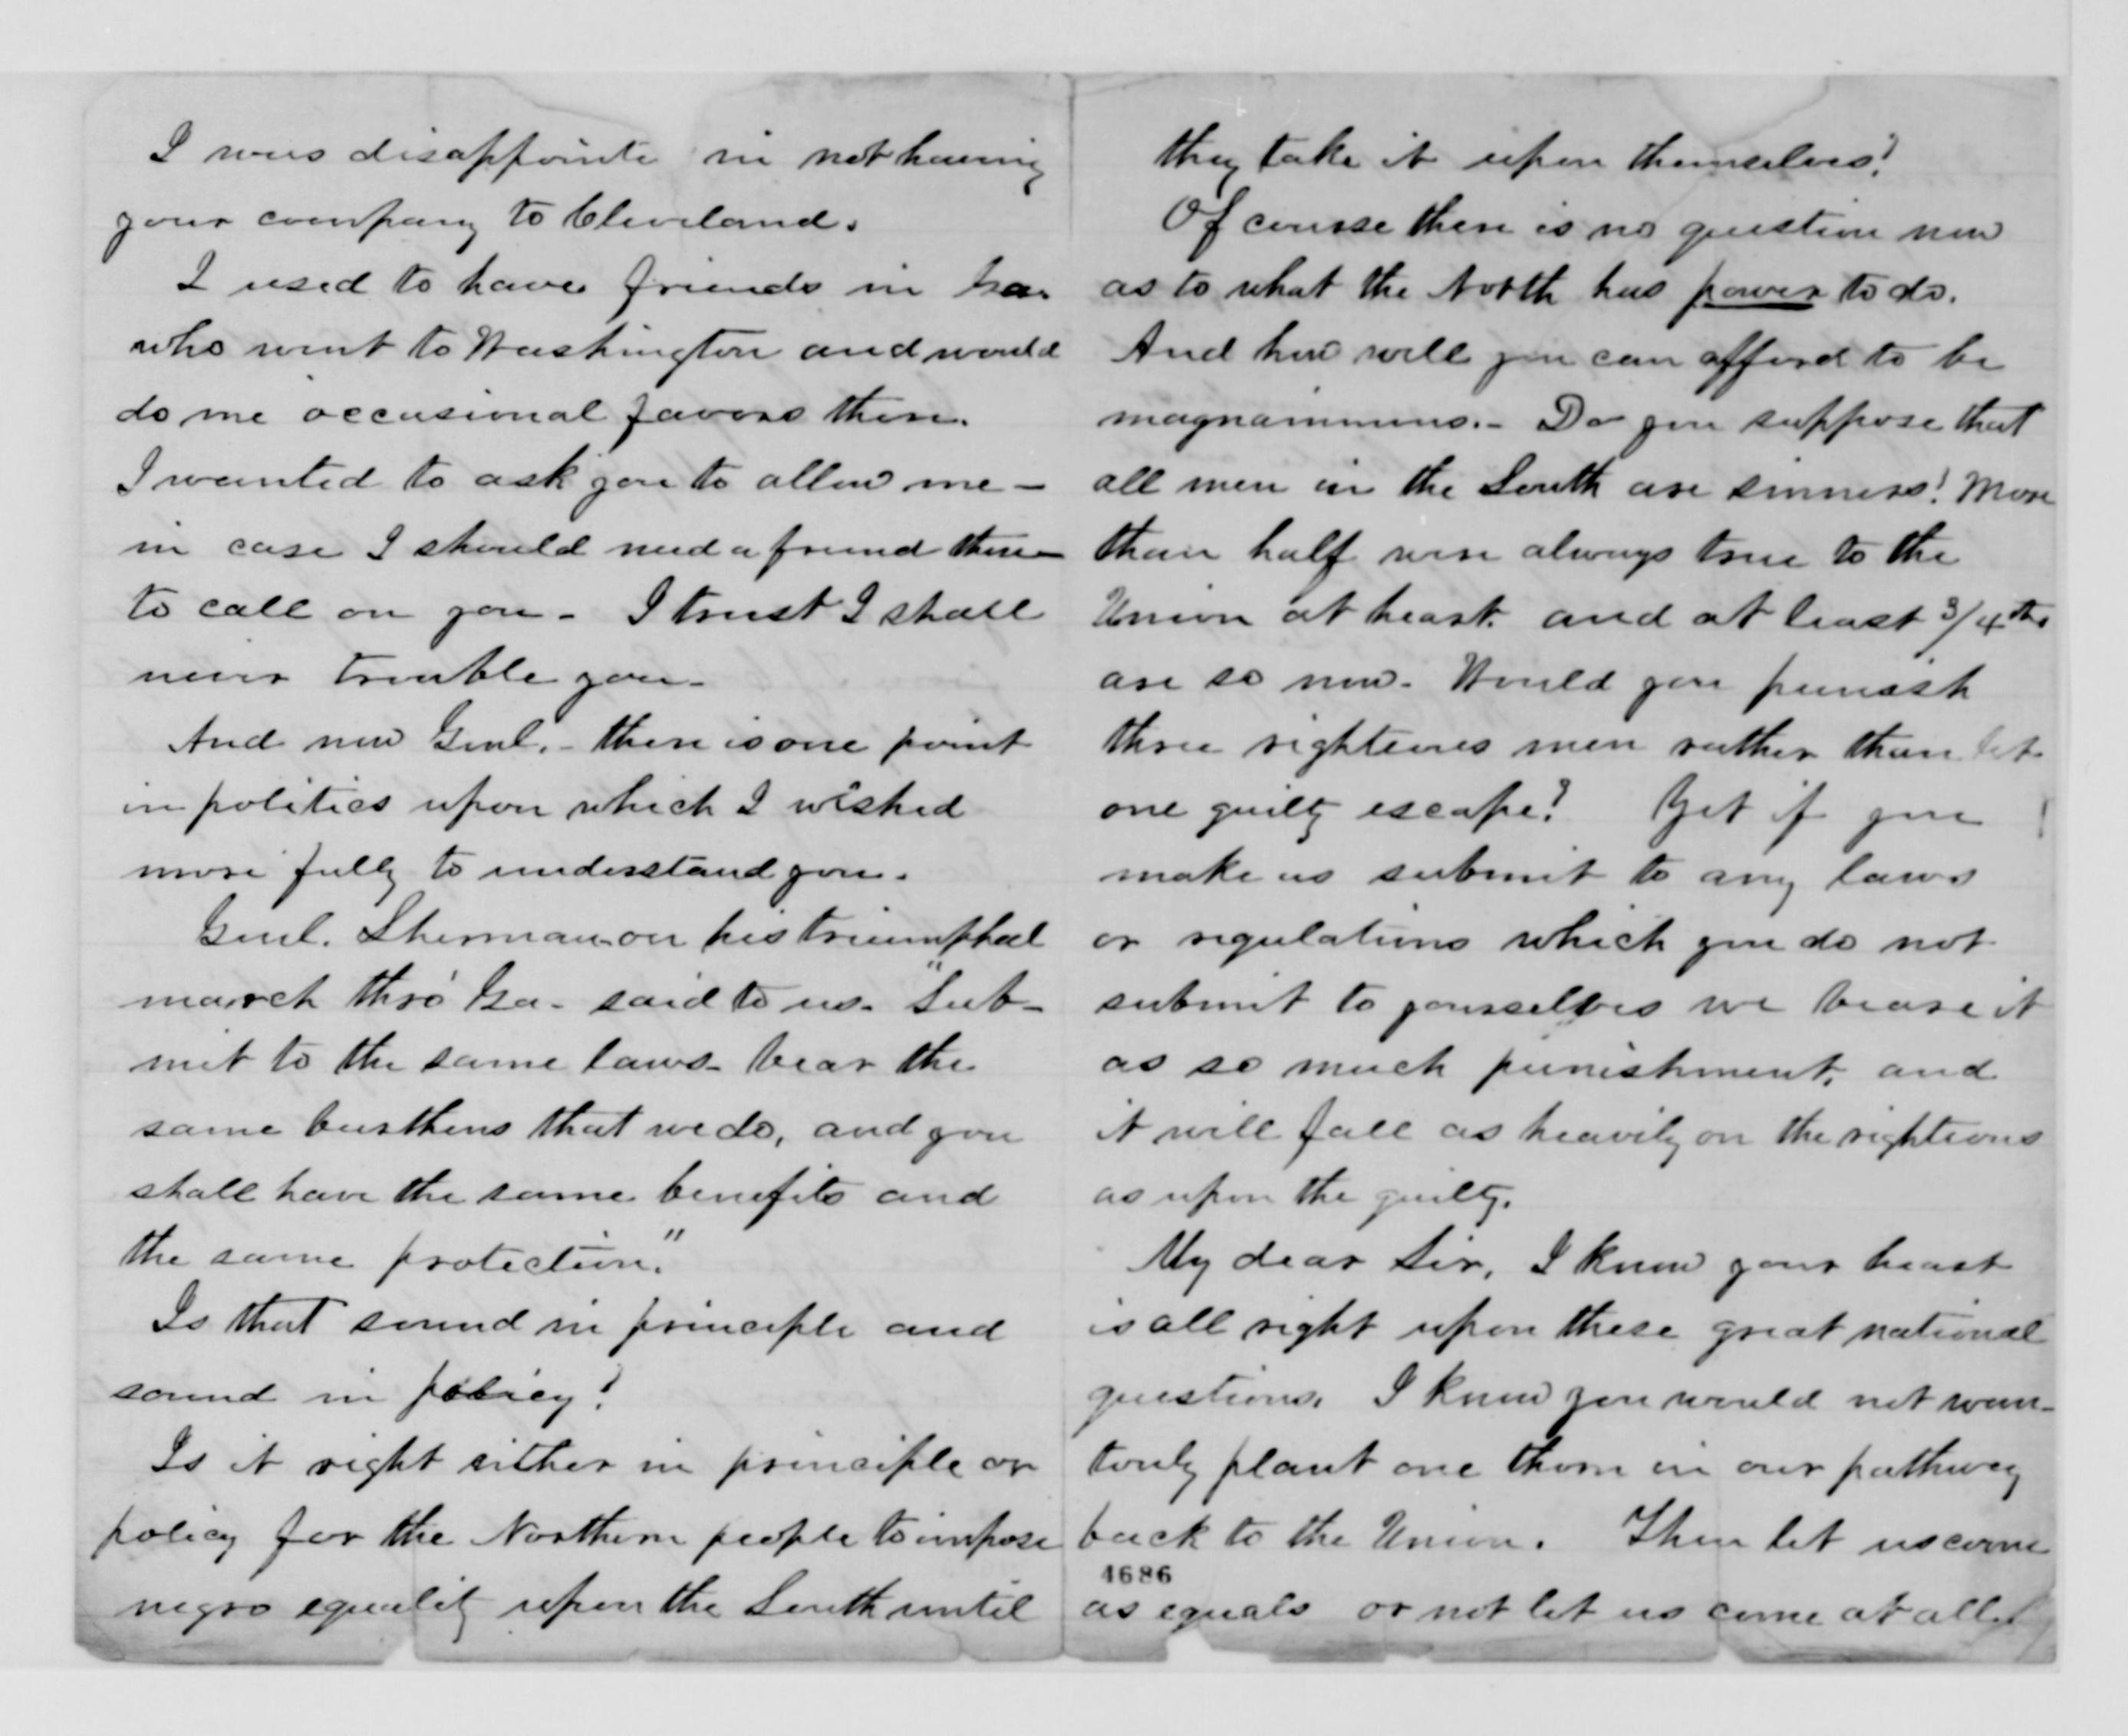 I was disappointe in not having
your company to Cleveland.
I used to have friends in Ga.
who went to Washington and would
do me occasional favors there.
I wanted to ask you to allow me –
in case I should need a friend there –
to call on you – I trust I shall
never trouble you –
And now Genl. – there is one point
in politics upon which I wished
more fully to understand you.
Genl. Sherman on his triumphal
march thro' Ga – said to us. "Sub-
mit to the same laws – bear the
same burthens that we do, and you
shall have the same benefits and
the same protection."
Is that sound in principle and
sound in policy?
Is it right either in principle or
policy for the Northern people to impose
negro equality upon the South until
they take it upon themselves?
Of course there is no question now
as to what the North has power to do.
And how well you can afford to be
magnanimous. – Do you suppose that
all men in the South are sinners? More
than half were always true to the
Union at heart. and at least 3/4ths
are so now. Would you punish
three righteous men rather than let
one guilty escape? Yet if you
make us submit to any laws
or regulations which you do not
submit to yourselves we beare it
as so much punishment, and
it will fall as heavily on the righteous
as upon the guilty.
My dear Sir, I know your heart
is all right upon these great national
questions. I know you would not wan-
tonly plant one thorn in our pathway
back to the Union. Then let us come
4686
as equals or not let us come at all.